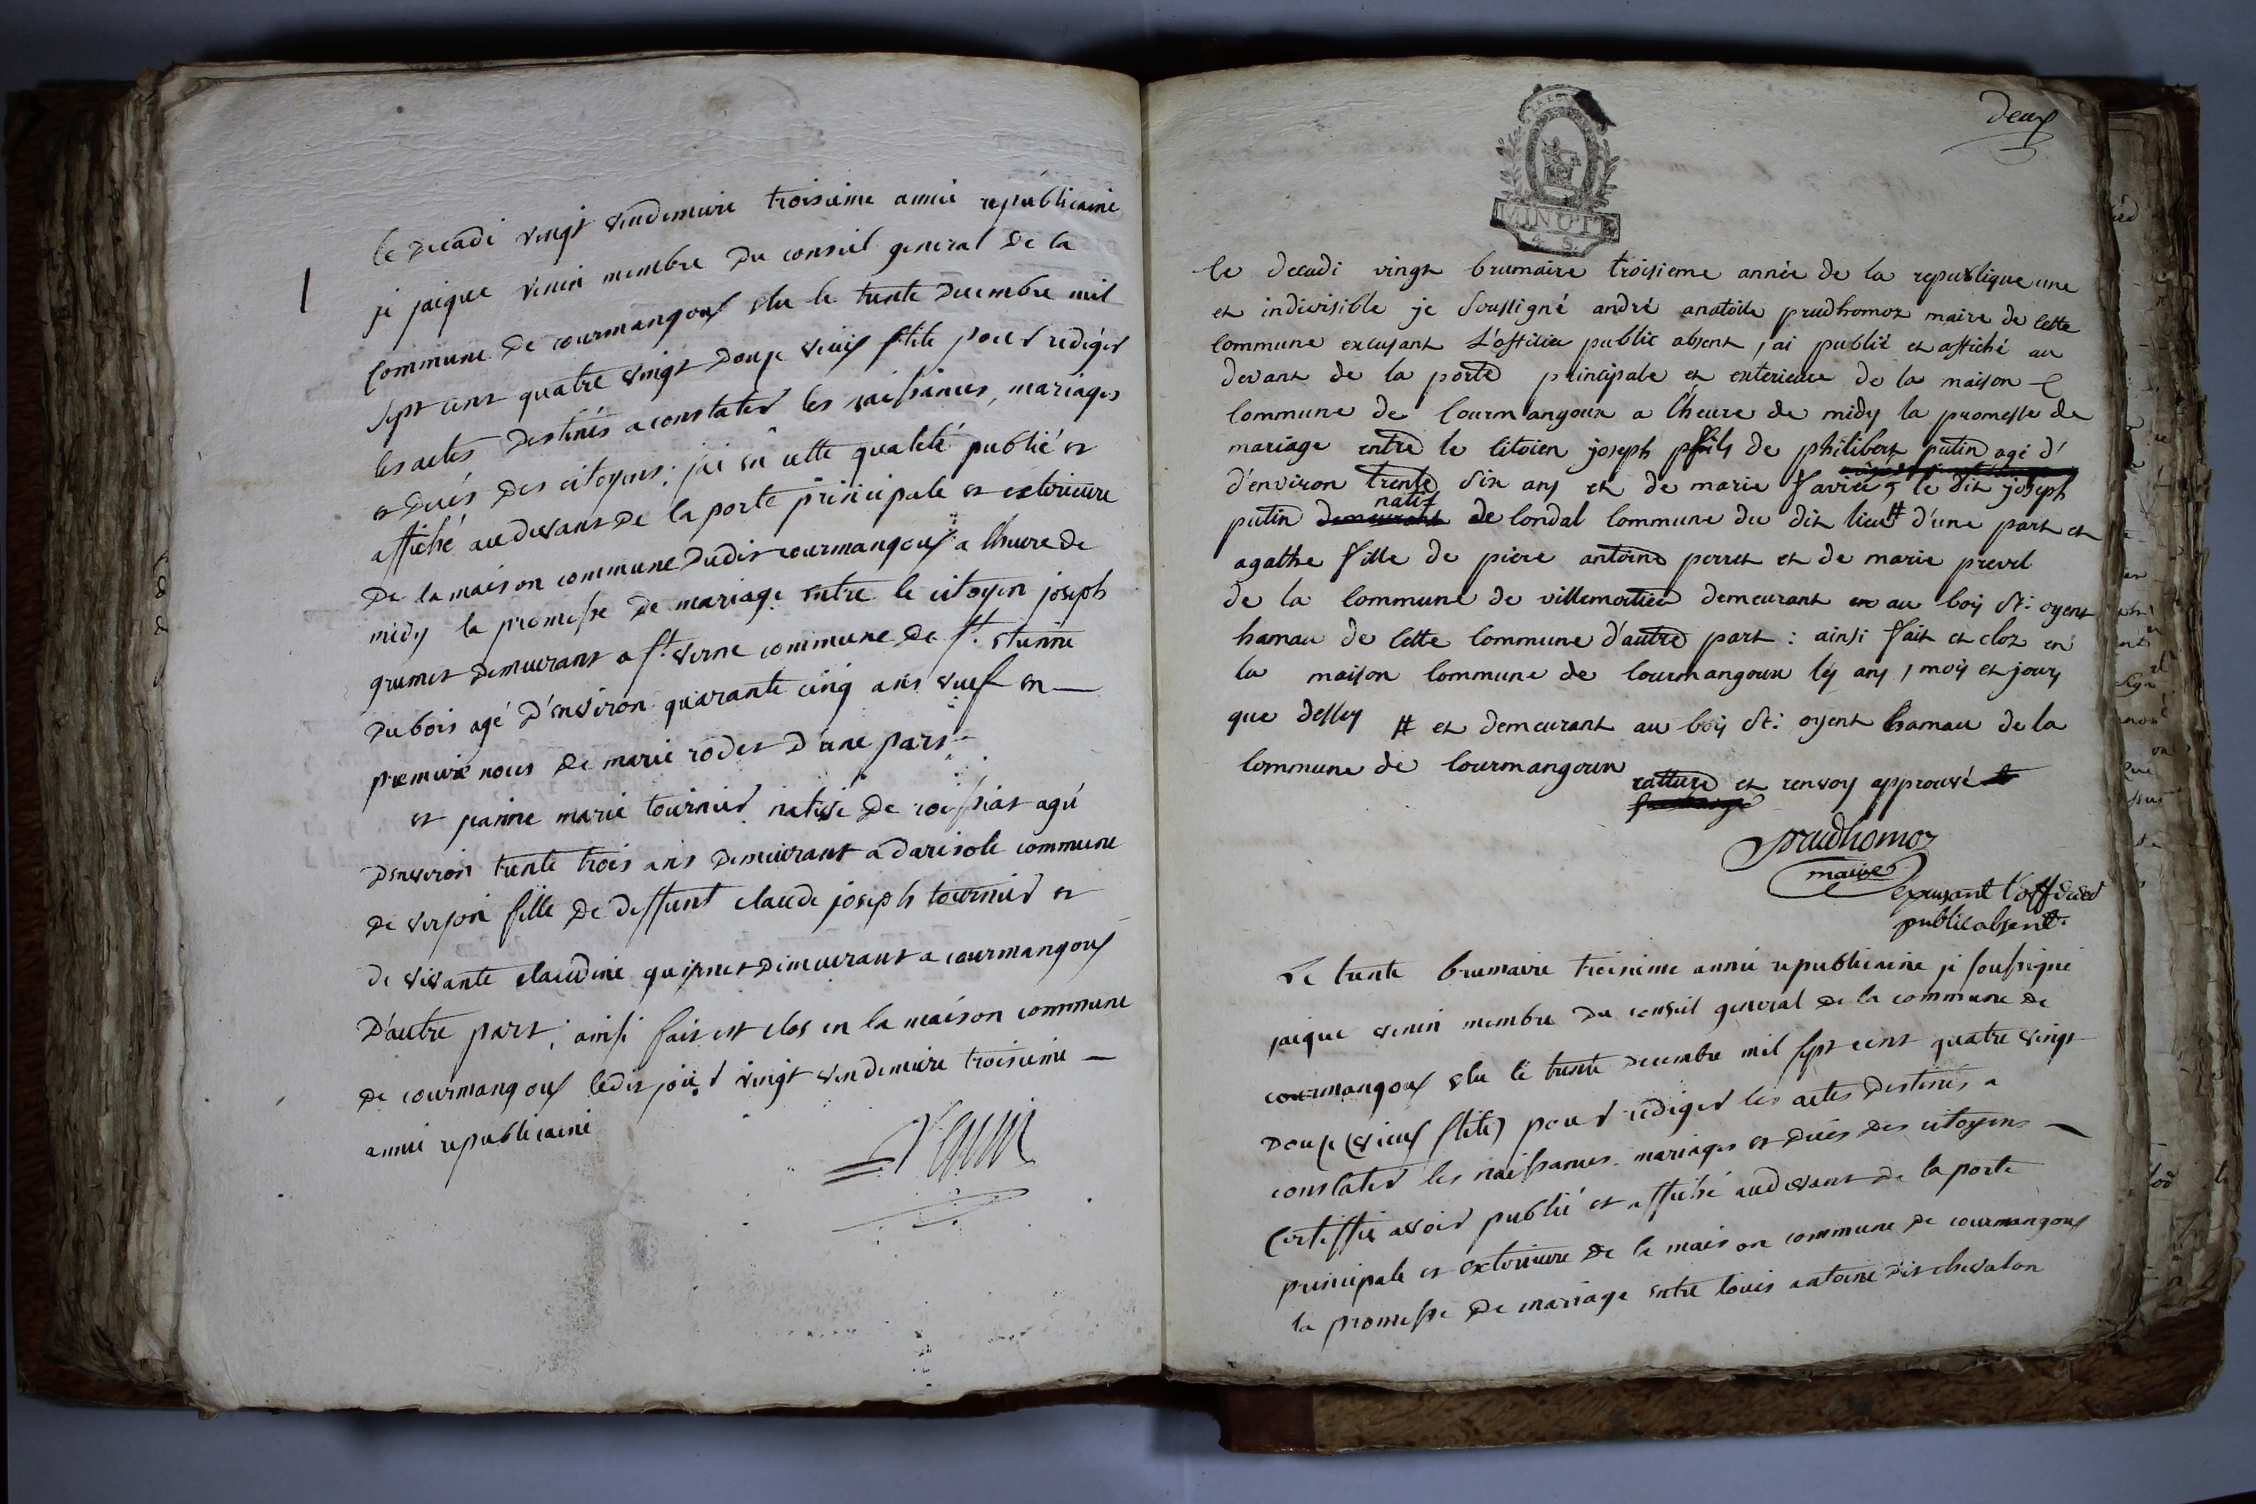 le decadi vingt vendemiaire troisieme année republicaine
je jaique venin membre du conseil general de la
commune de courmangoux elu le trente decembre mil
sept cent quatre vingt douze vieux stile pour rediger
les actes destinés a constater les naissances, mariages
et decés des citoyens; jai en cette qualité publié et
affiché au devant de la porte principale et exterieure
de la maison commune dudit courmangoux a lheure de
midy la promesse de mariage entre le citoyen joseph
grumet demeurant a st. verne commune de st. etienne
dubois agé d'environ quarante cinq ans veuf en
premiere noces de marie rodet d'une part
et jeanne marie tournier native de roissiat agé
denviron trente trois ans demeurant a darisole commune
de verjon fille de deffunt claude joseph tournier et
de vivante claudine demeurant a courmangoux
d'autre part; ainsi fait et clos en la maison commune
de courmangoux ledit jour vingt vendemiaire troisieme
année republicaine
Venin
deux
MINUTE
4. S.
le decadi vingt brumaire troisieme année de la republique une
et indivisible je soussigné andré anatoile prudhomoz maire de cette
commune excusant L'officier public absent, ai publié et affiché au
devant de la porte principale et exterieure de la maison
commune de Courmangoux a l'heure de midy la promesse de
mariage entre le citoien joseph fils de philibert putin agé d'
d'environ trente six ans et de marie favier, le dit joseph
natif
putin demeurant de condal commune du dit lieu # d'une part et
agathe fille de piere antoine perret et de marie prevel
de la commune de villemotier demeurant au bois St: oyent
hamau de cette commune d'autre part: ainsi fait et cloz en
la maison commune de courmangoux les ans, mois et jours
que dessus # et demeurant au bois St: oyent hamau de la
commune de Courmangoux
ratture et renvoy approuvé
prudhomoz
maire
excusant l'officier
public absent.
Le trente brumaire troisieme année republicaine je soussigné
jaique venin membre du conseil general de la commune de
courmangoux elu le trente decembre mil sept cent quatre vingt
douze (vieux stile) pour rediger les actes destinés a
constater les naissances. mariages et decés des citoyens
Certiffie avoir publié et affiché au devant de la porte
principale et exterieure de la maison commune de courmangoux
la promesse de mariage entre louis antoine dit chevalon